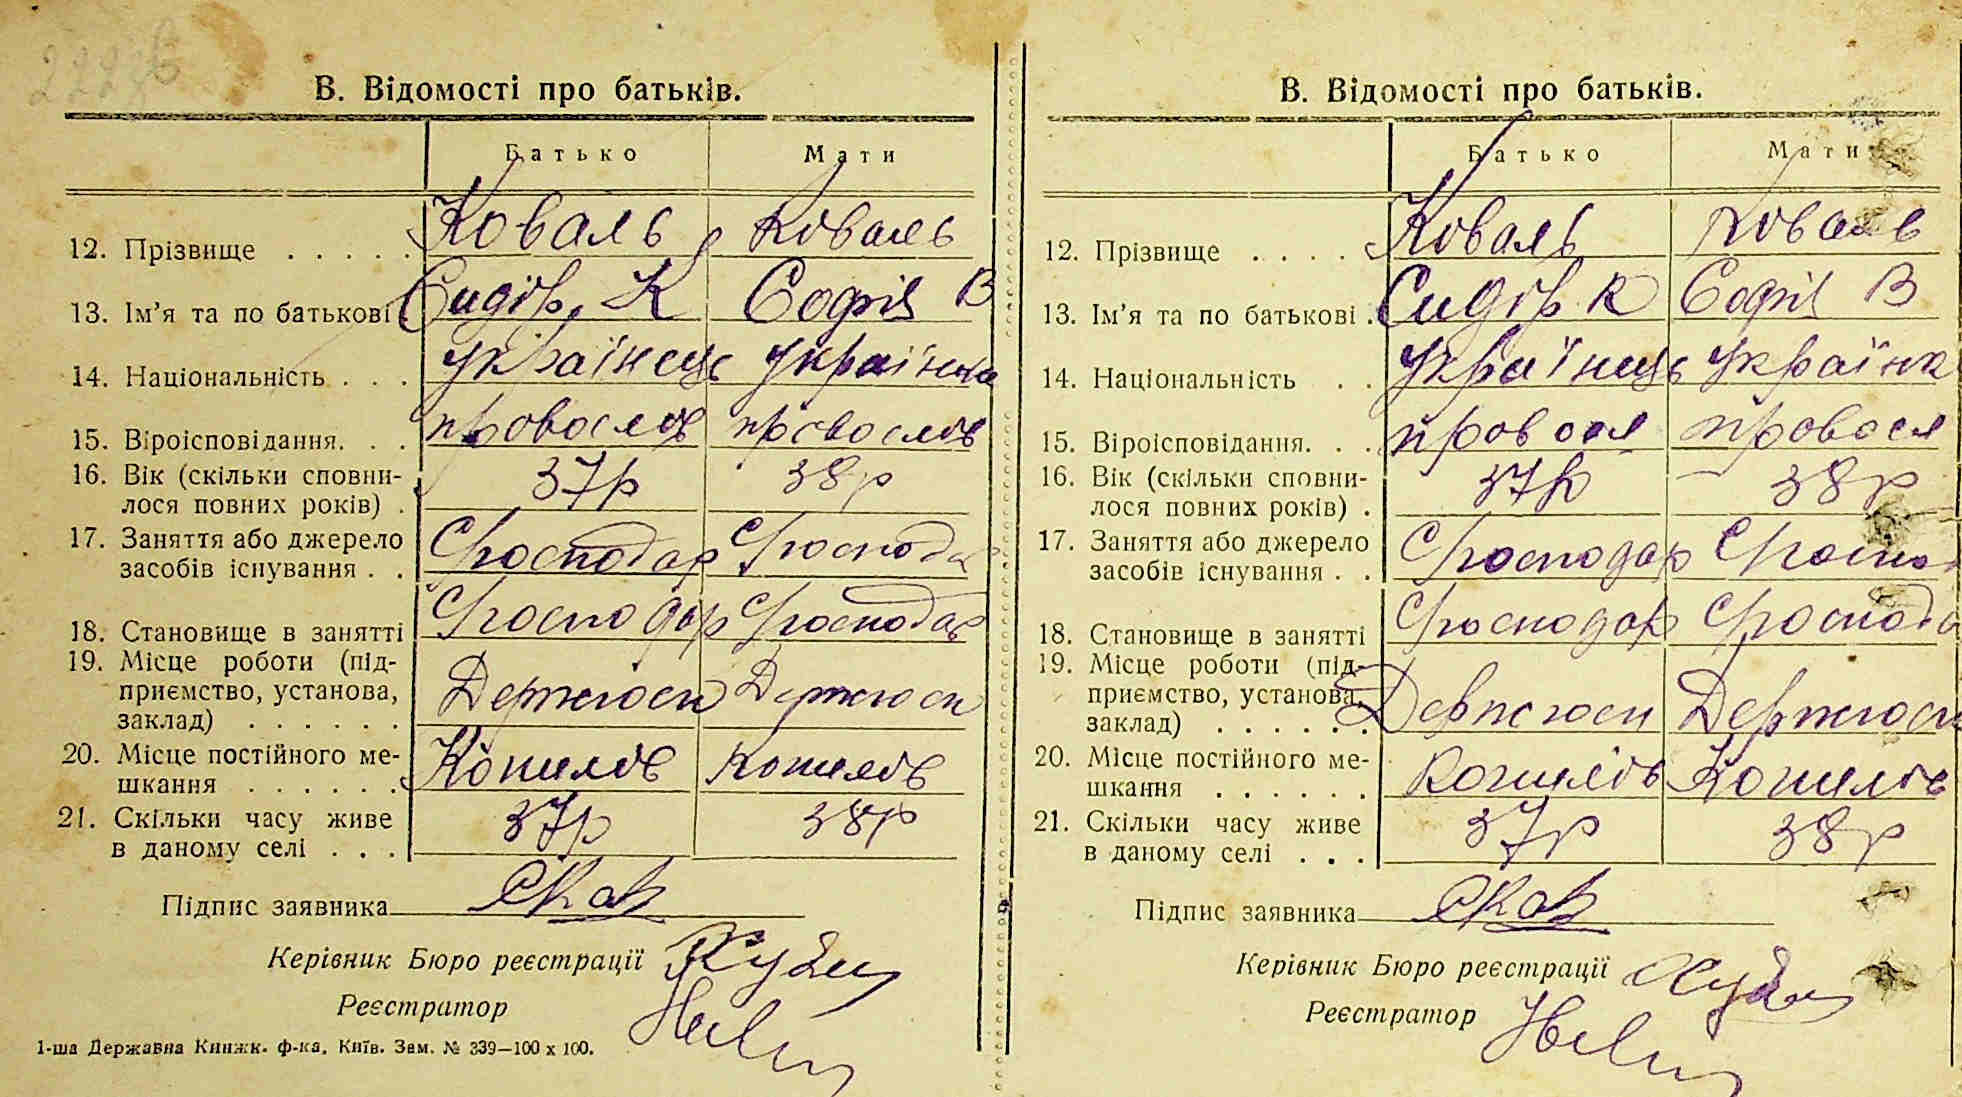 В. Відомості про батьків.
Батько Мати
12. Прізвище . . . . . Коваль Коваль
13. Ім'я та по батькові Сидір, К Софія В
14. Національність . . . Українець Українка
15. Віроісповідання. . . провослов провослов
16. Вік (скільки сповни-
лося повних років) . 37р 38р
17. Заняття або джерело
засобів існування . . Господар Господа
18. Становище в занятті Господар Господар
19. Місце роботи (під-
приємство, установа,
заклад) . . . . . . Держгосп Держгосп
20. Місце постійного ме-
шкання . . . . . . Копилів Копилів
21. Скільки часу живе
в даному селі . . . 37р 38р
Підпис заявника СКов
Керівник Бюро реєстрації
Реєстратор
1-ша Державна Книжк. ф-ка, Київ. Зам. № 339—100 x 100.
В. Відомості про батьків.
Батько Мати
12. Прізвище . . . . Коваль Коваль
13. Ім'я та по батькові . Сидір К Софія В
14. Національність . . Українець Українк
15. Віроісповідання. . . провосл провосл
16. Вік (скільки сповни-
лося повних років) . 37р 38р
17. Заняття або джерело
засобів існування . . Господар Госпо
18. Становище в занятті Господар Господа
19. Місце роботи (під-
приємство, установа,
заклад) . . . . . . Держгосп Держгосп
20. Місце постійного ме-
шкання . . . . . . Копилів Копилів
21. Скільки часу живе
в даному селі . . . 37р 38р
Підпис заявника СКов
Керівник Бюро реєстрації
Реєстратор